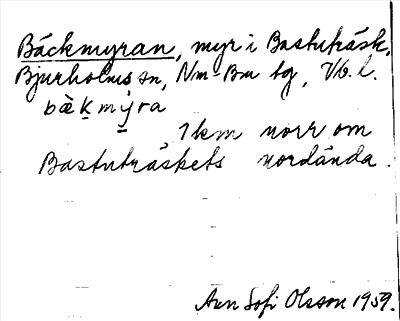 Bäckmyran, myr i Bastuträsk,
Bjurholms sn, Nm-Bm tg, Vb. l.
bæ̀k̠mýra
1 km norr om
Bastuträskets nordända.
Ann Sofi Olsson 1959.